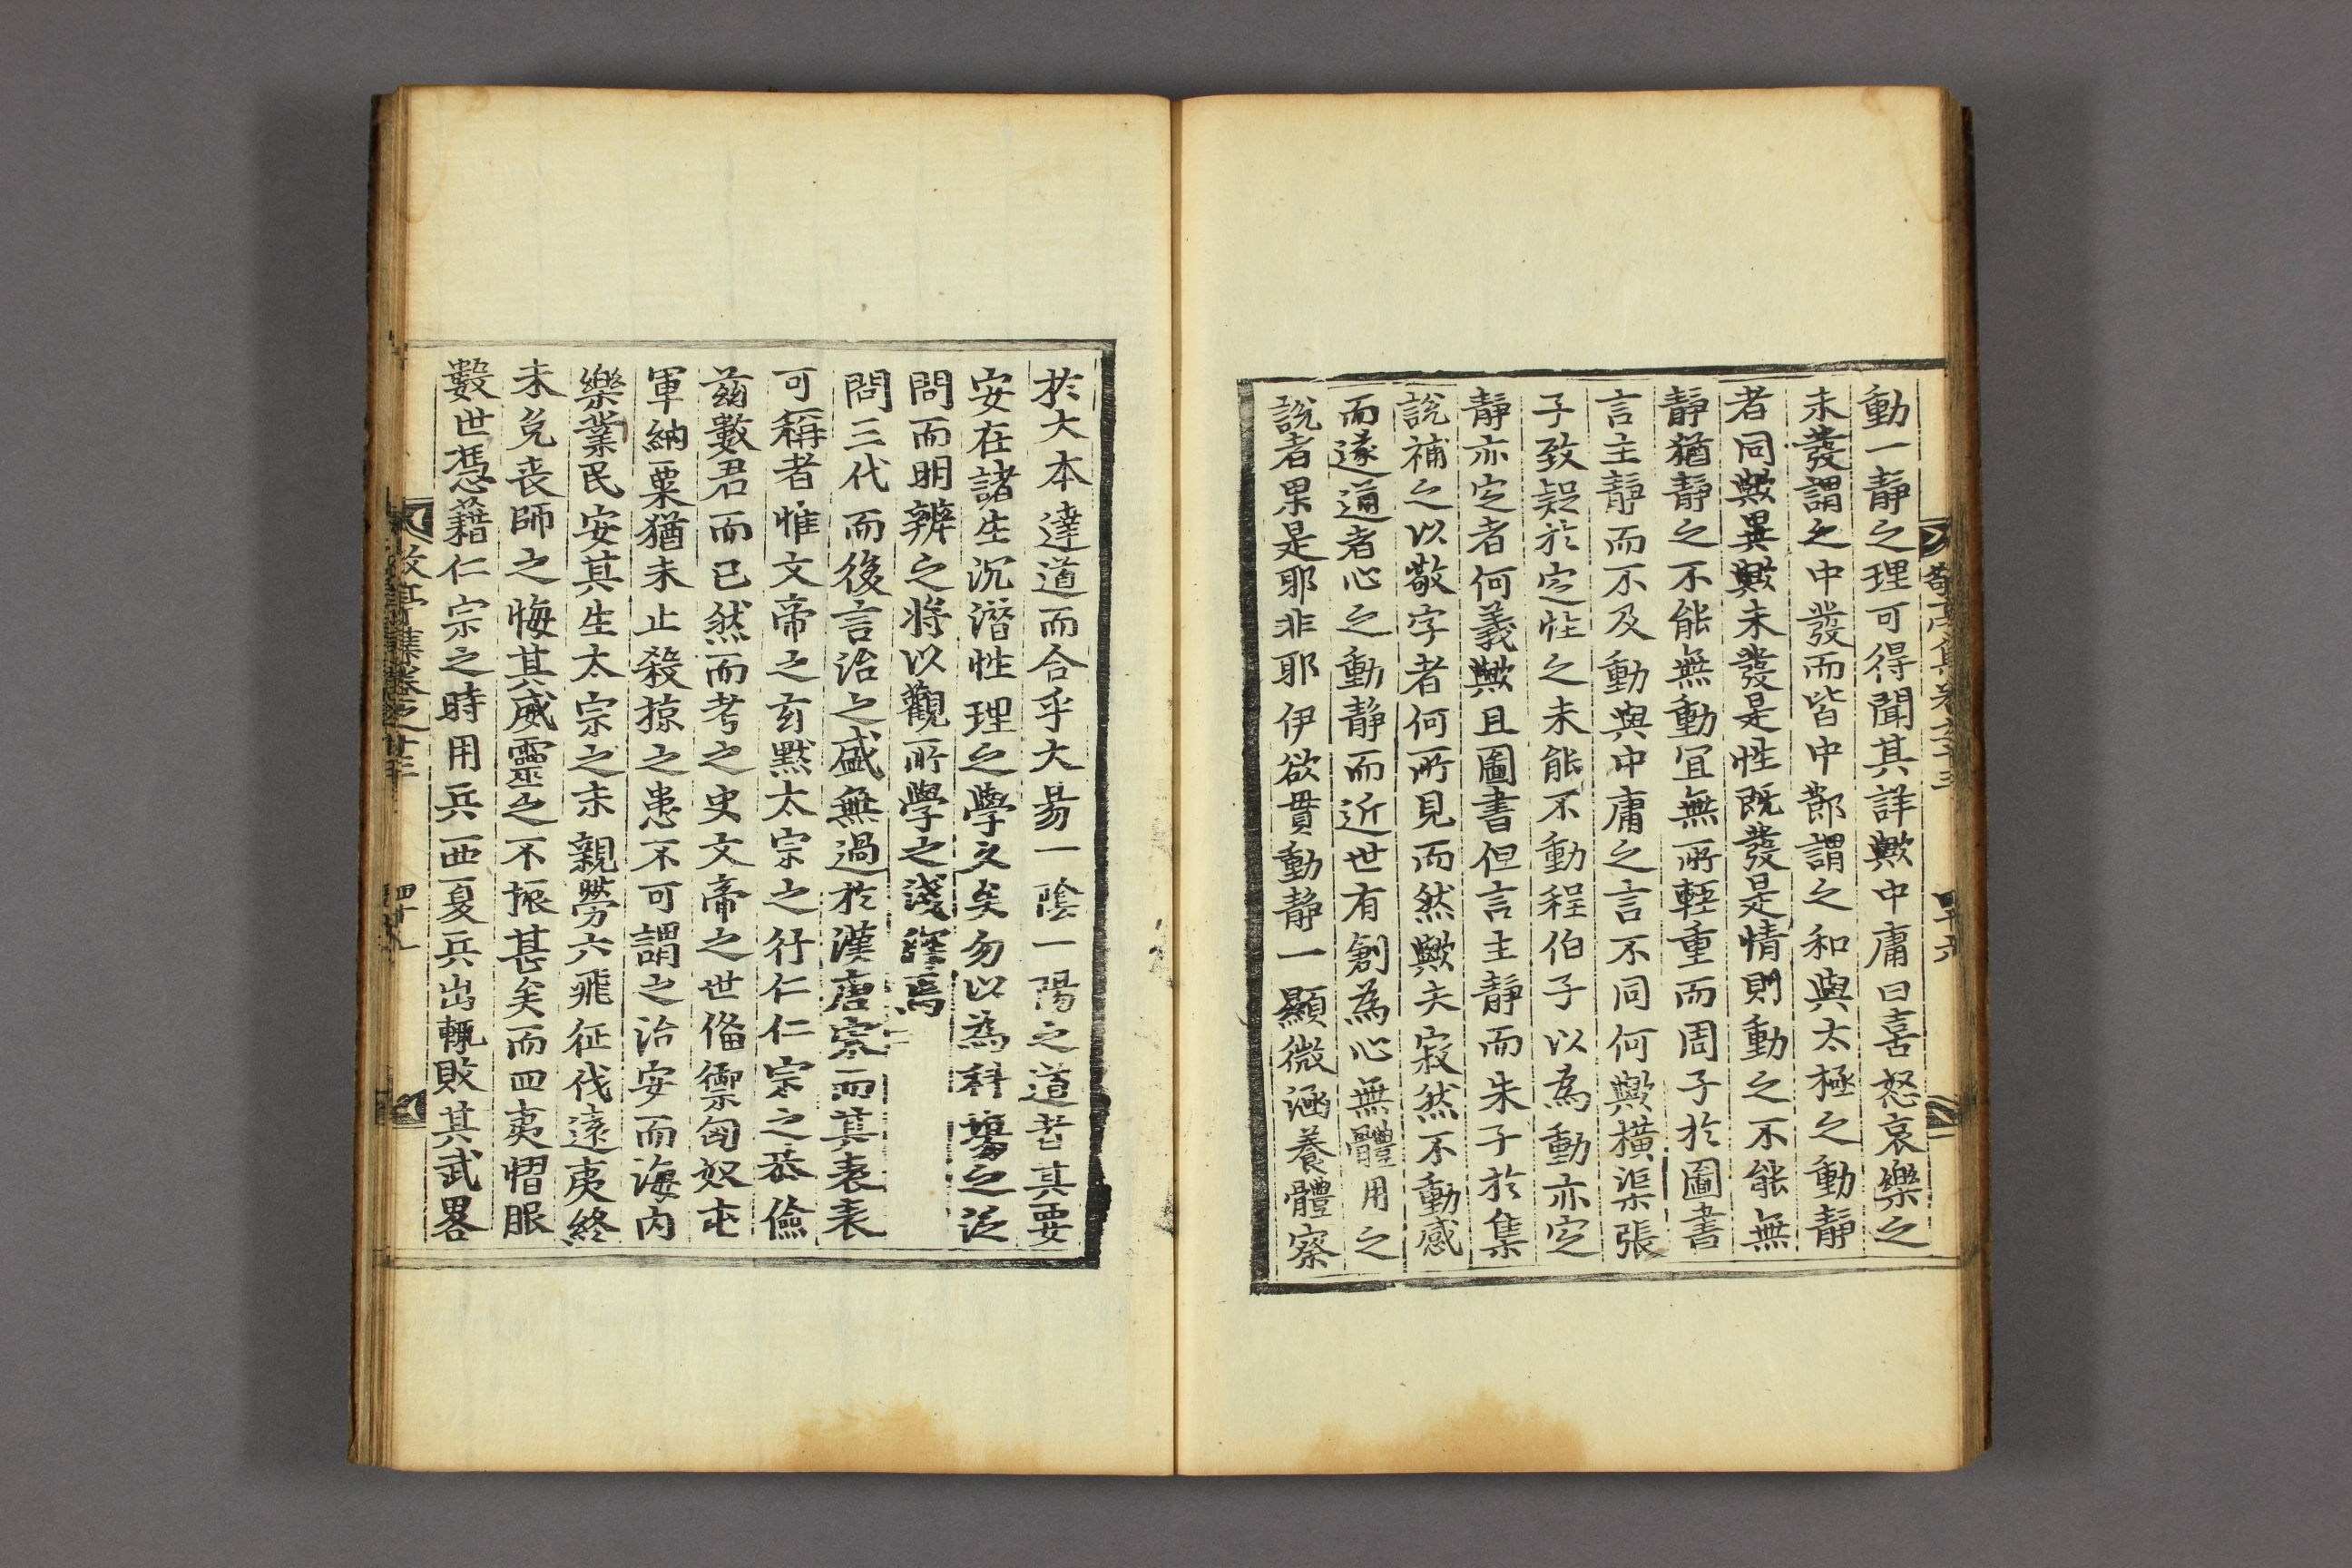 動一靜之理可得聞其詳歟中庸曰喜怒哀樂之
未發謂之中發而皆中節謂之和與太極之動靜
者同歟異歟未發是性既發是情則動之不能無
靜猶靜之不能無動宜無所輕重而周子於圖書
言主靜而不及動與中庸之言不同何歟橫渠張
子致疑於定性之未能不動程伯子以為動亦定
靜亦定者何義歟且圖書但言主靜而朱子於集
說補之以敬字者何所見而然歟夫寂然不動感
而遂通者心之動靜而近世有創為心無體用之
說者果是耶非耶伊欲貫動靜一顯微涵養體察
於大本達道而合乎大易一陰一陽之道者其要
安在諸生沉潛性理之學久矣勿以為科場之泛
問而明辨之將以觀所學之淺深焉
問三代而後言治之盛無過於漢唐宋而其表表
可稱者惟文帝之玄默太宗之行仁仁宗之恭儉
茲數君而已然而考之史文帝之世備禦匈奴屯
軍納粟猶未止殺掠之患不可謂之治安而海內
樂業民安其生太宗之末親勞六飛征伐遠夷終
未免喪師之悔其威靈之不振甚矣而四夷慴服
數世憑藉仁宗之時用兵西夏兵出輒敗其武畧
亭集卷之廿三